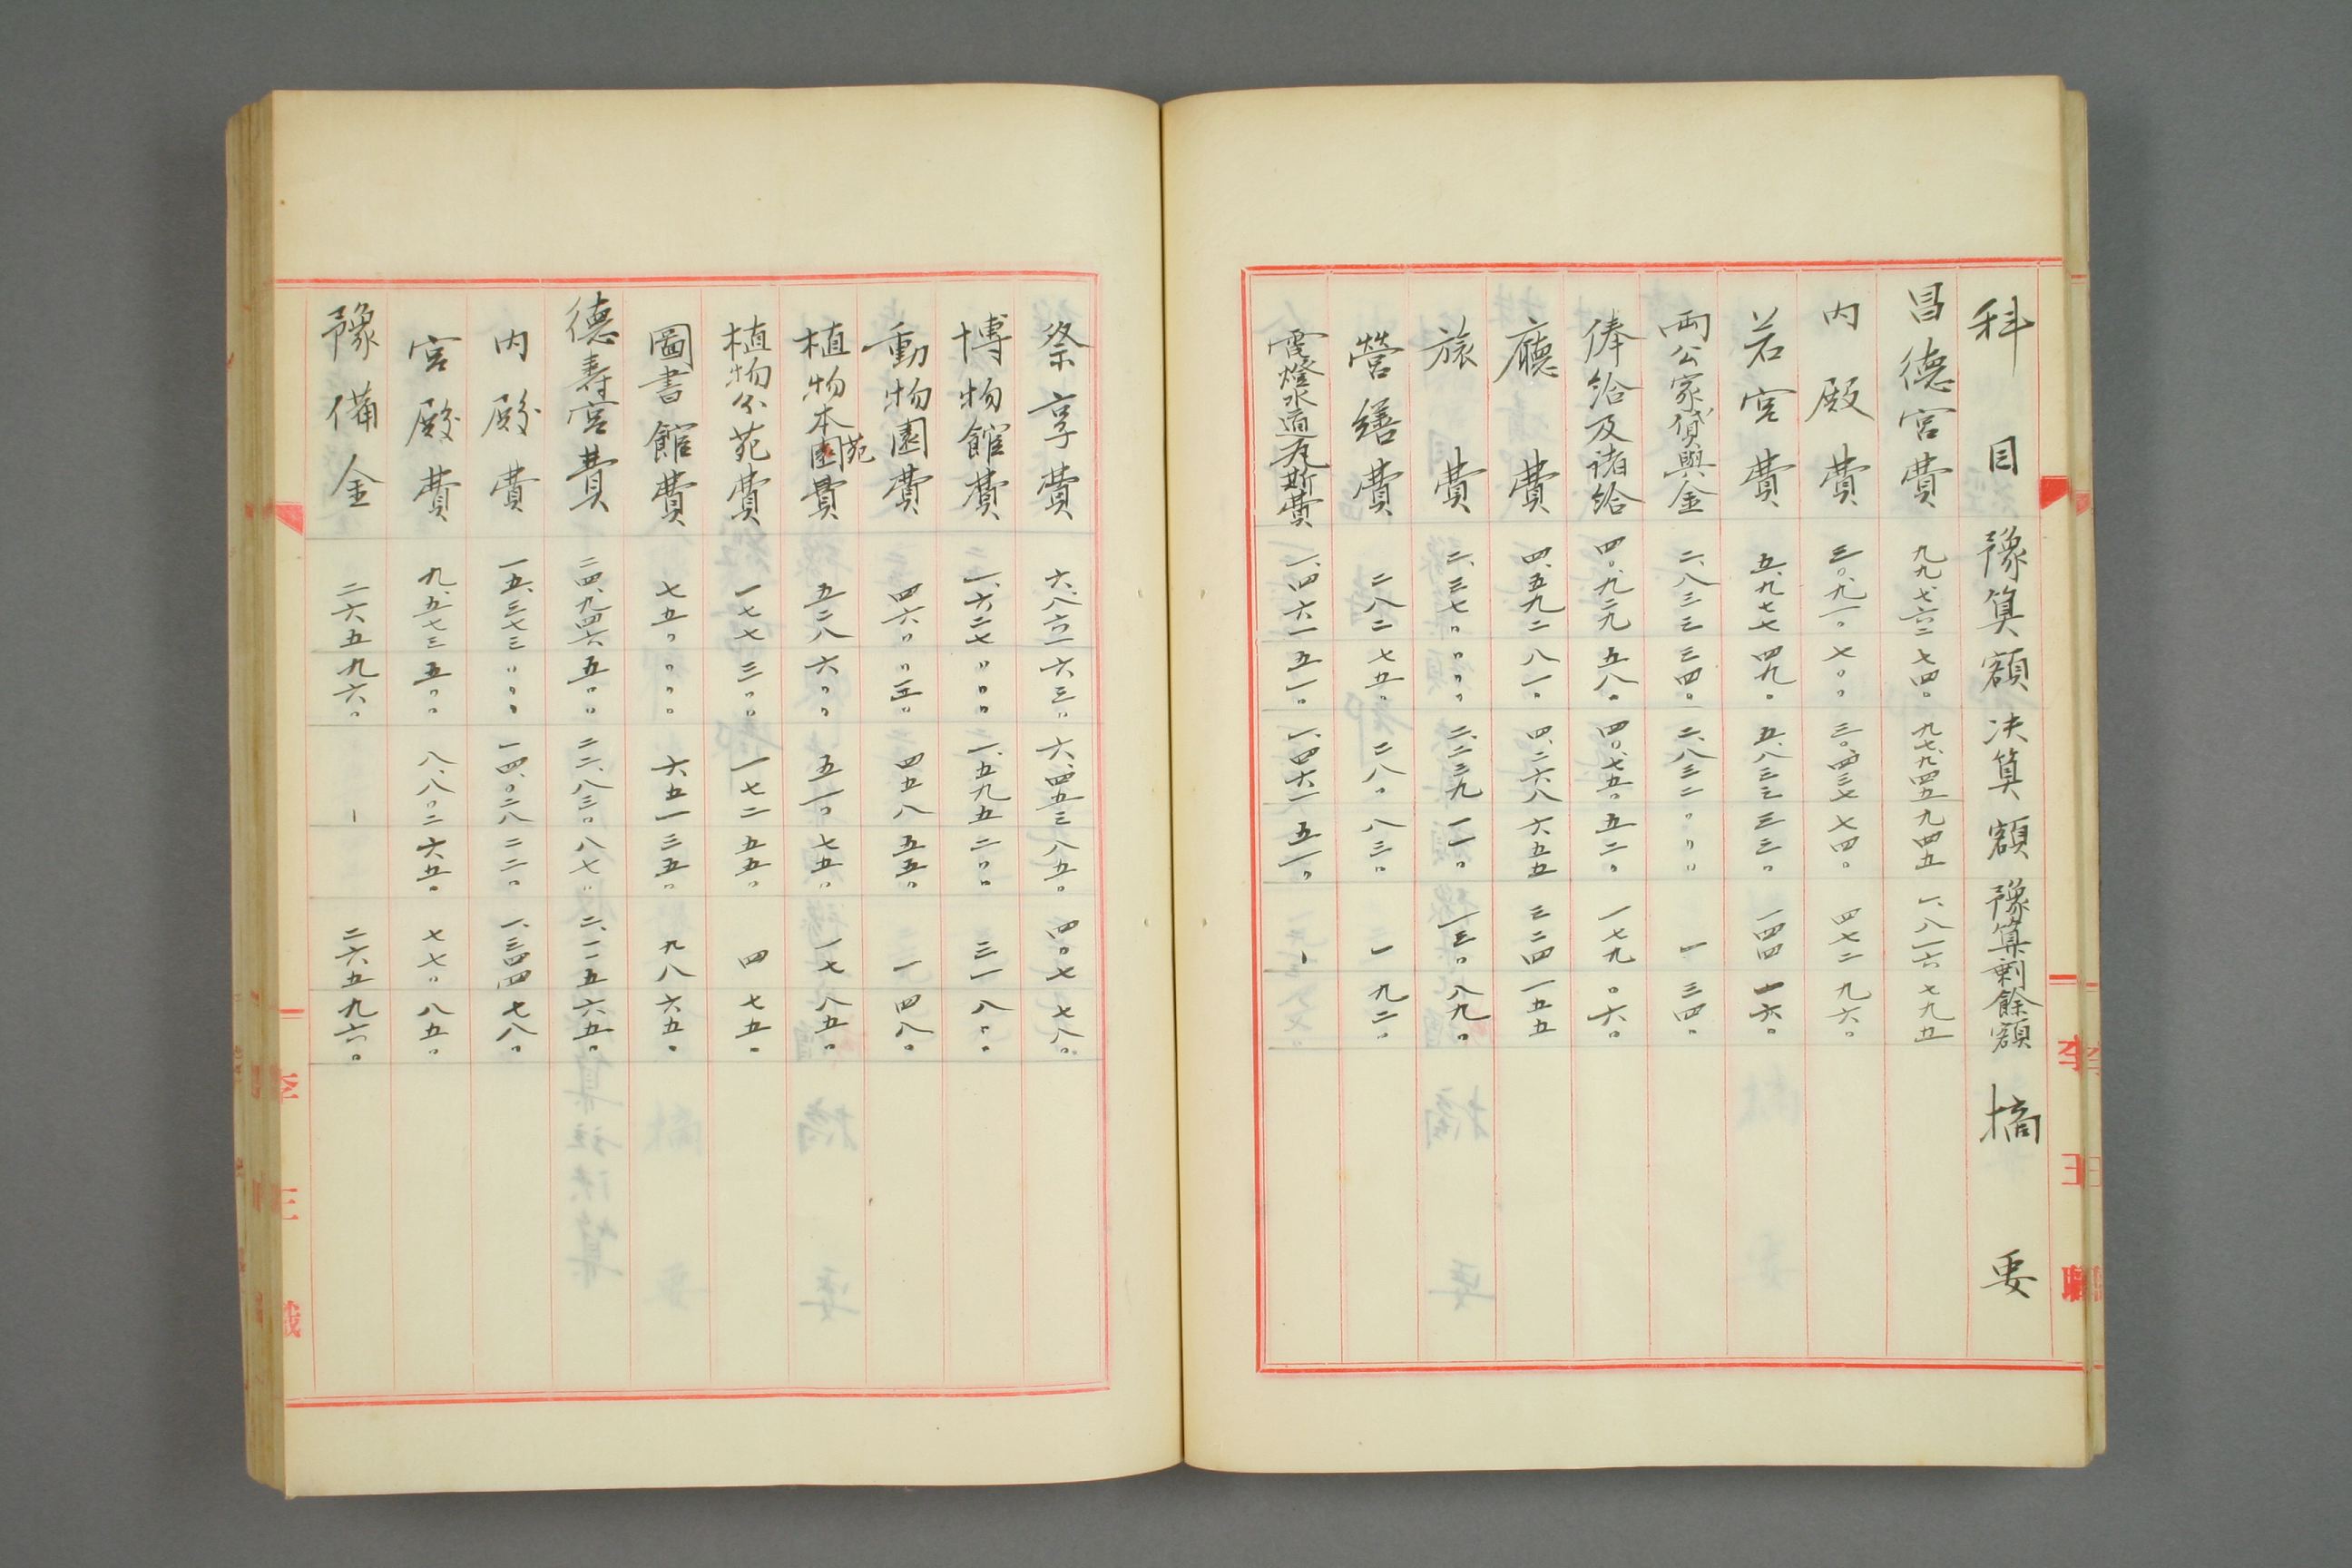 科目 豫算額 決算額 豫算剰餘額 摘要
昌德宮費 九九、七六二 七四〇 九七、九四五 九四五 一、八一六 七九五
内殿費 三〇、九一〇 七〇〇 三〇、四三七 七四〇 四七二 九六〇
若宮費 五、九七七 四九〇 五、八三三 三三〇 一四四 一六〇
両公家貸與金 二、八三三 三四〇 二、八三二 〇〇〇 一 三四〇
俸給及諸給 四〇、九二九 五八〇 四〇、七五〇 五二〇 一七九 〇六〇
廳費 四、五九二 八一〇 四、二六八 六五五 三二四 一五五
旅費 二、三七〇 〇〇〇 二、二三九 一一〇 一三〇 八九〇
營繕費 二八二 七五〇 二八〇 八三〇 一 九二〇
電燈水道瓦斯費 一、四六一 五一〇 一、四六一 五一〇 ー
祭享費 六、八六一 六三〇 六、四五三 八五〇 四〇七 七八〇
博物館費 一、六二七 〇〇〇 一、五九五 二〇〇 三一 八〇〇
動物園費 四六〇 〇三〇 四五八 五五〇 一 四八〇
植物本苑費 五二八 六〇〇 五一〇 七五〇 一七 八五〇
植物分苑費 一七七 三〇〇 一七二 五五〇 四 七五〇
圖書館費 七五〇 〇〇〇 六五一 三五〇 九八 六五〇
德壽宮費 二四、九四六 五〇〇 二二、八三〇 八七〇 二、一一五 六五〇
内殿費 一五、三七三 〇〇〇 一四、〇二八 二二〇 一、三四四 七八〇
宮殿費 九、五七三 五〇〇 八、八〇二 六五〇 七七〇 八五〇
豫備金 二六五 九六〇 ー 二六五 九六〇
李王職
李王職